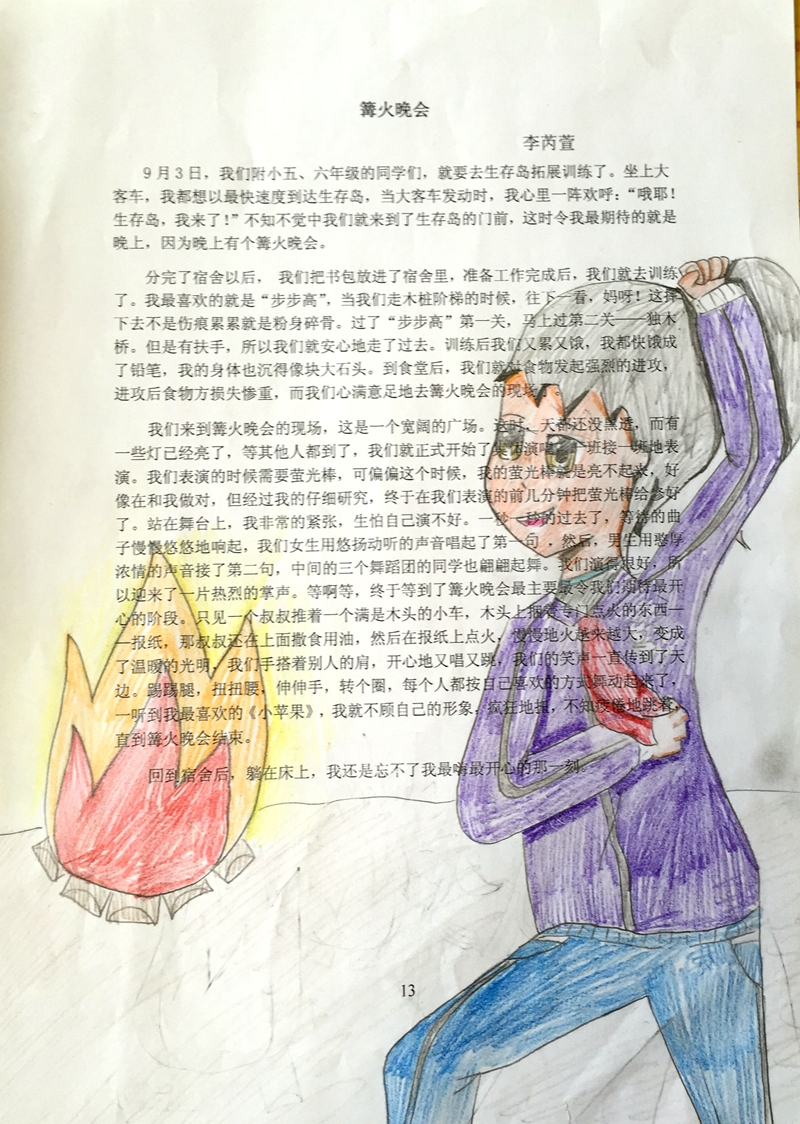 篝火晚会
李芮萱
9月3日，我们附小五、六年级的同学们，就要去生存岛拓展训练了。坐上大
客车，我都想以最快速度到达生存岛，当大客车发动时，我心里一阵欢呼：“哦耶！
生存岛，我来了！”不知不觉中我们就来到了生存岛的门前，这时令我最期待的就是
晚上，因为晚上有个篝火晚会。
分完了宿舍以后， 我们把书包放进了宿舍里，准备工作完成后，我们就去训练
了。我最喜欢的就是“步步高”，当我们走木桩阶梯的时候，往下一看，妈呀！这摔
下去不是伤痕累累就是粉身碎骨。过了“步步高”第一关，马上过第二关——独木
桥。但是有扶手，所以我们就安心地走了过去。训练后我们又累又饿，我都快饿成
了铅笔，我的身体也沉得像块大石头。到食堂后，我们就对食物发起强烈的进攻，
进攻后食物方损失惨重，而我们心满意足地去篝火晚会的现场了。
我们来到篝火晚会的现场，这是一个宽阔的广场。这时，天都还没黑透，而有
一些灯已经亮了，等其他人都到了，我们就正式开始了 演唱 一班接一班地表
演。我们表演的时候需要萤光棒，可偏偏这个时候，我的萤光棒就是亮不起来，好
像在和我做对，但经过我的仔细研究，终于在我们表演的前几分钟把萤光棒给修好
了。站在舞台上，我非常的紧张，生怕自己演不好。一秒一秒的过去了，等待的曲
子慢慢悠悠地响起，我们女生用悠扬动听的声音唱起了第一句，然后，男生用憨厚
浓情的声音接了第二句，中间的三个舞蹈团的同学也翩翩起舞。我们演得很好，所
以迎来了一片热烈的掌声。等啊等，终于等到了篝火晚会最主要最令我们期待最开
心的阶段。只见一个叔叔推着一个满是木头的小车，木头上捆着专门点火的东西—
—报纸，那叔叔还在上面撒食用油，然后在报纸上点火，慢慢地火越来越大，变成
了温暖的光明，我们手搭着别人的肩，开心地又唱又跳，我们的笑声一直传到了天
边。踢踢腿，扭扭腰，伸伸手，转个圈，每个人都按自己喜欢的方式舞动起来了，
一听到我最喜欢的《小苹果》，我就不顾自己的形象，疯狂地扭，不知疲倦地跳着，
直到篝火晚会结束。
回到宿舍后，躺在床上，我还是忘不了我最嗨最开心的那一刻。
13